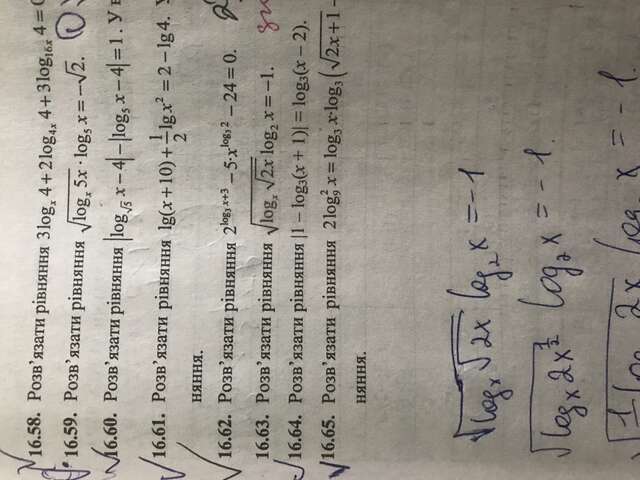 16.58. Розв'язати рівняння 3logₓ 4 + 2log₄ₓ 4 + 3log₁₆ₓ 4 = 0
16.59. Розв'язати рівняння √(logₓ 5x) · log₅ x = −√2.
16.60. Розв'язати рівняння |log_√5 x − 4| − |log₅ x − 4| = 1. У
16.61. Розв'язати рівняння lg(x + 10) + 1/2 lg x² = 2 − lg 4. У
няння.
16.62. Розв'язати рівняння 2^(log₃ x+3) − 5·x^(log₃ 2) − 24 = 0.
16.63. Розв'язати рівняння √(logₓ √(2x)) log₂ x = −1.
16.64. Розв'язати рівняння |1 − log₃(x + 1)| = log₃(x − 2).
16.65. Розв'язати рівняння 2log₉² x = log₃ x·log₃(√(2x+1) −
няння.
√(logₓ √(2x)) log₂ x = −1
√(logₓ 2x^(1/2)) log₂ x = −1.
x = −1.